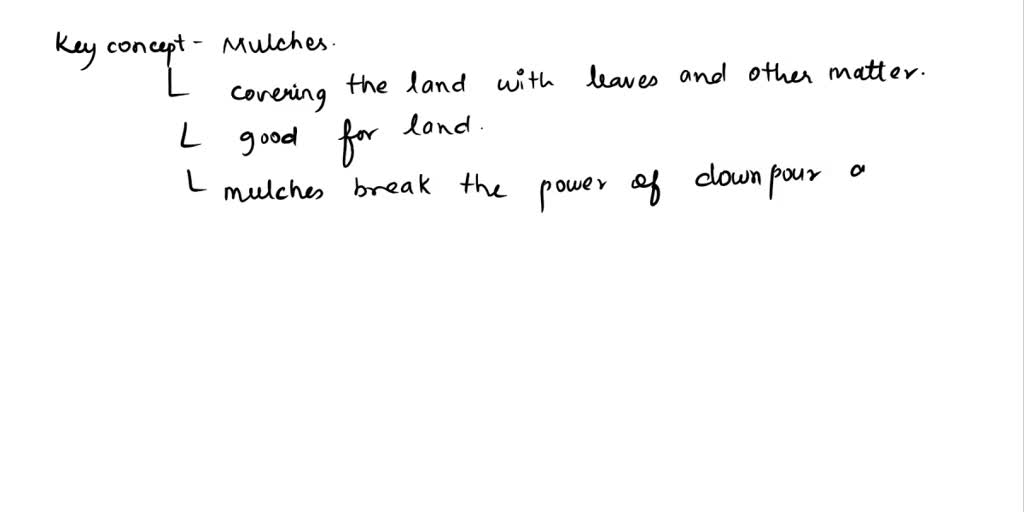 Key concept - Mulches.
covering the land with leaves and other matter.
good for land.
mulches break the power of downpour a